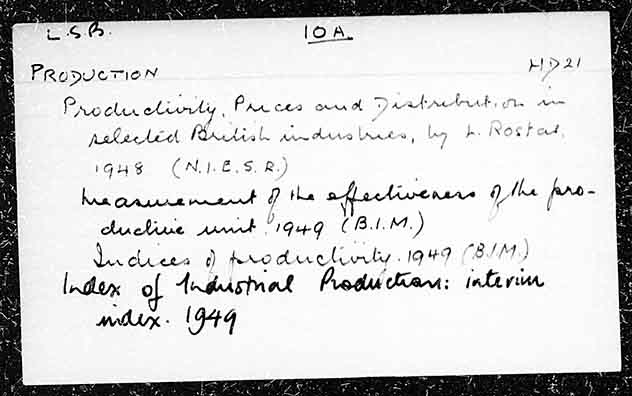 L.S.B. 10A
PRODUCTION HD21
Productivity, Prices and Distribution in
selected British industries, by L. Rostas.
1948 (N.I.E.S.R.)
Measurement of the effectiveness of the pro-
ductive unit. 1949 (B.I.M.)
Indices of productivity. 1949 (BIM.)
Index of Industrial Production: interim
index. 1949